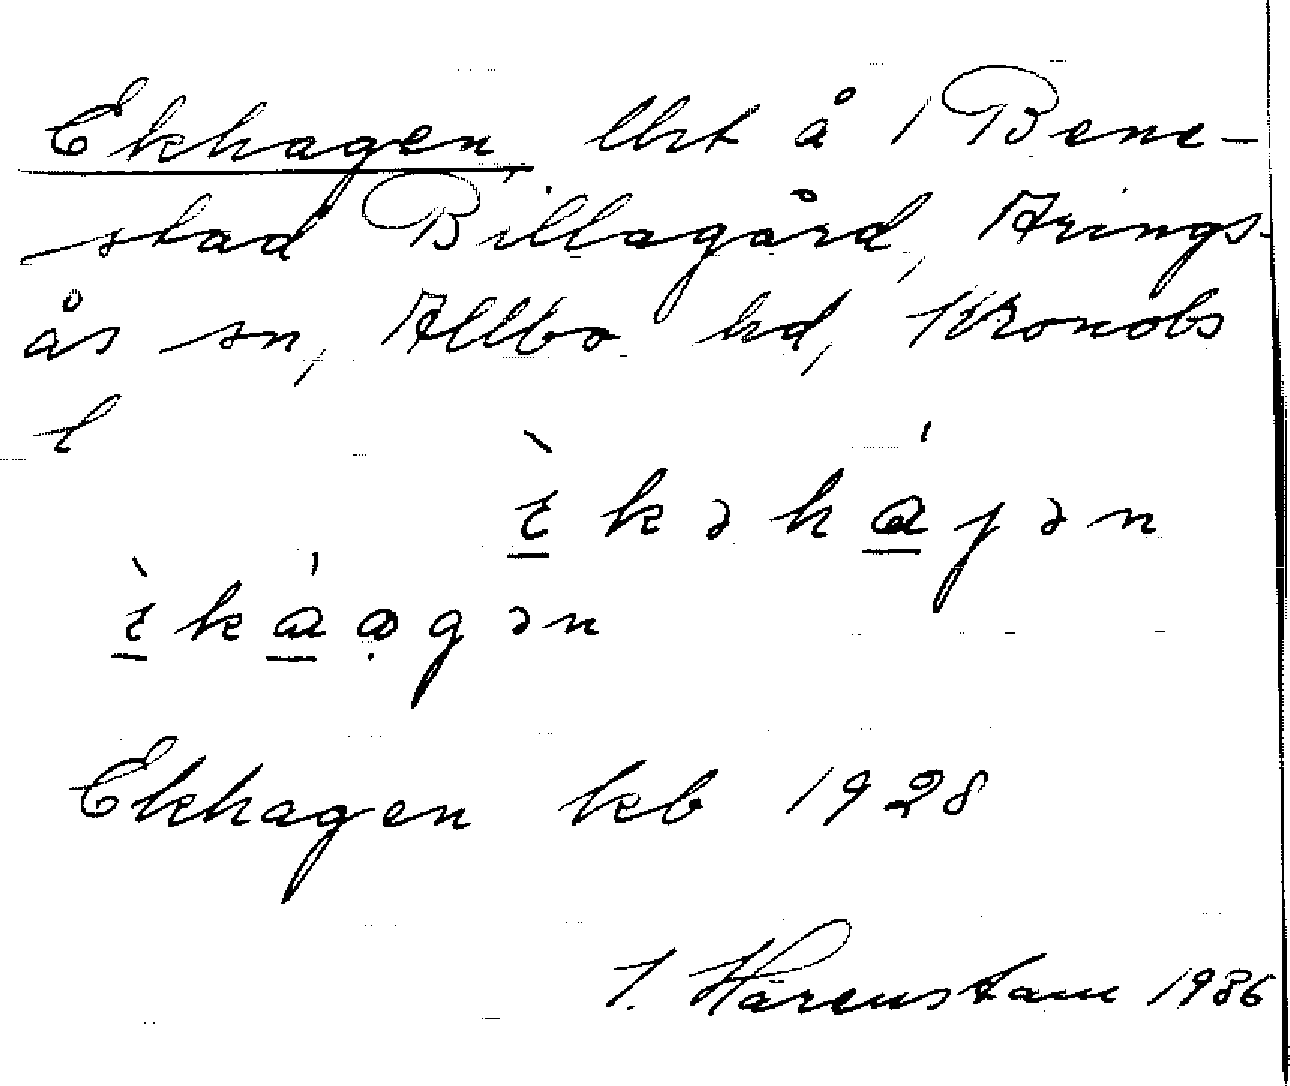 Ekhagen, lht å 1 Bene-
stad Billagård, Arings-
ås sn, Allbo hd, Kronobs
l
ὶkəhájən
ὶkáɑgən
Ekhagen kb 1928
I. Härenstam 1986